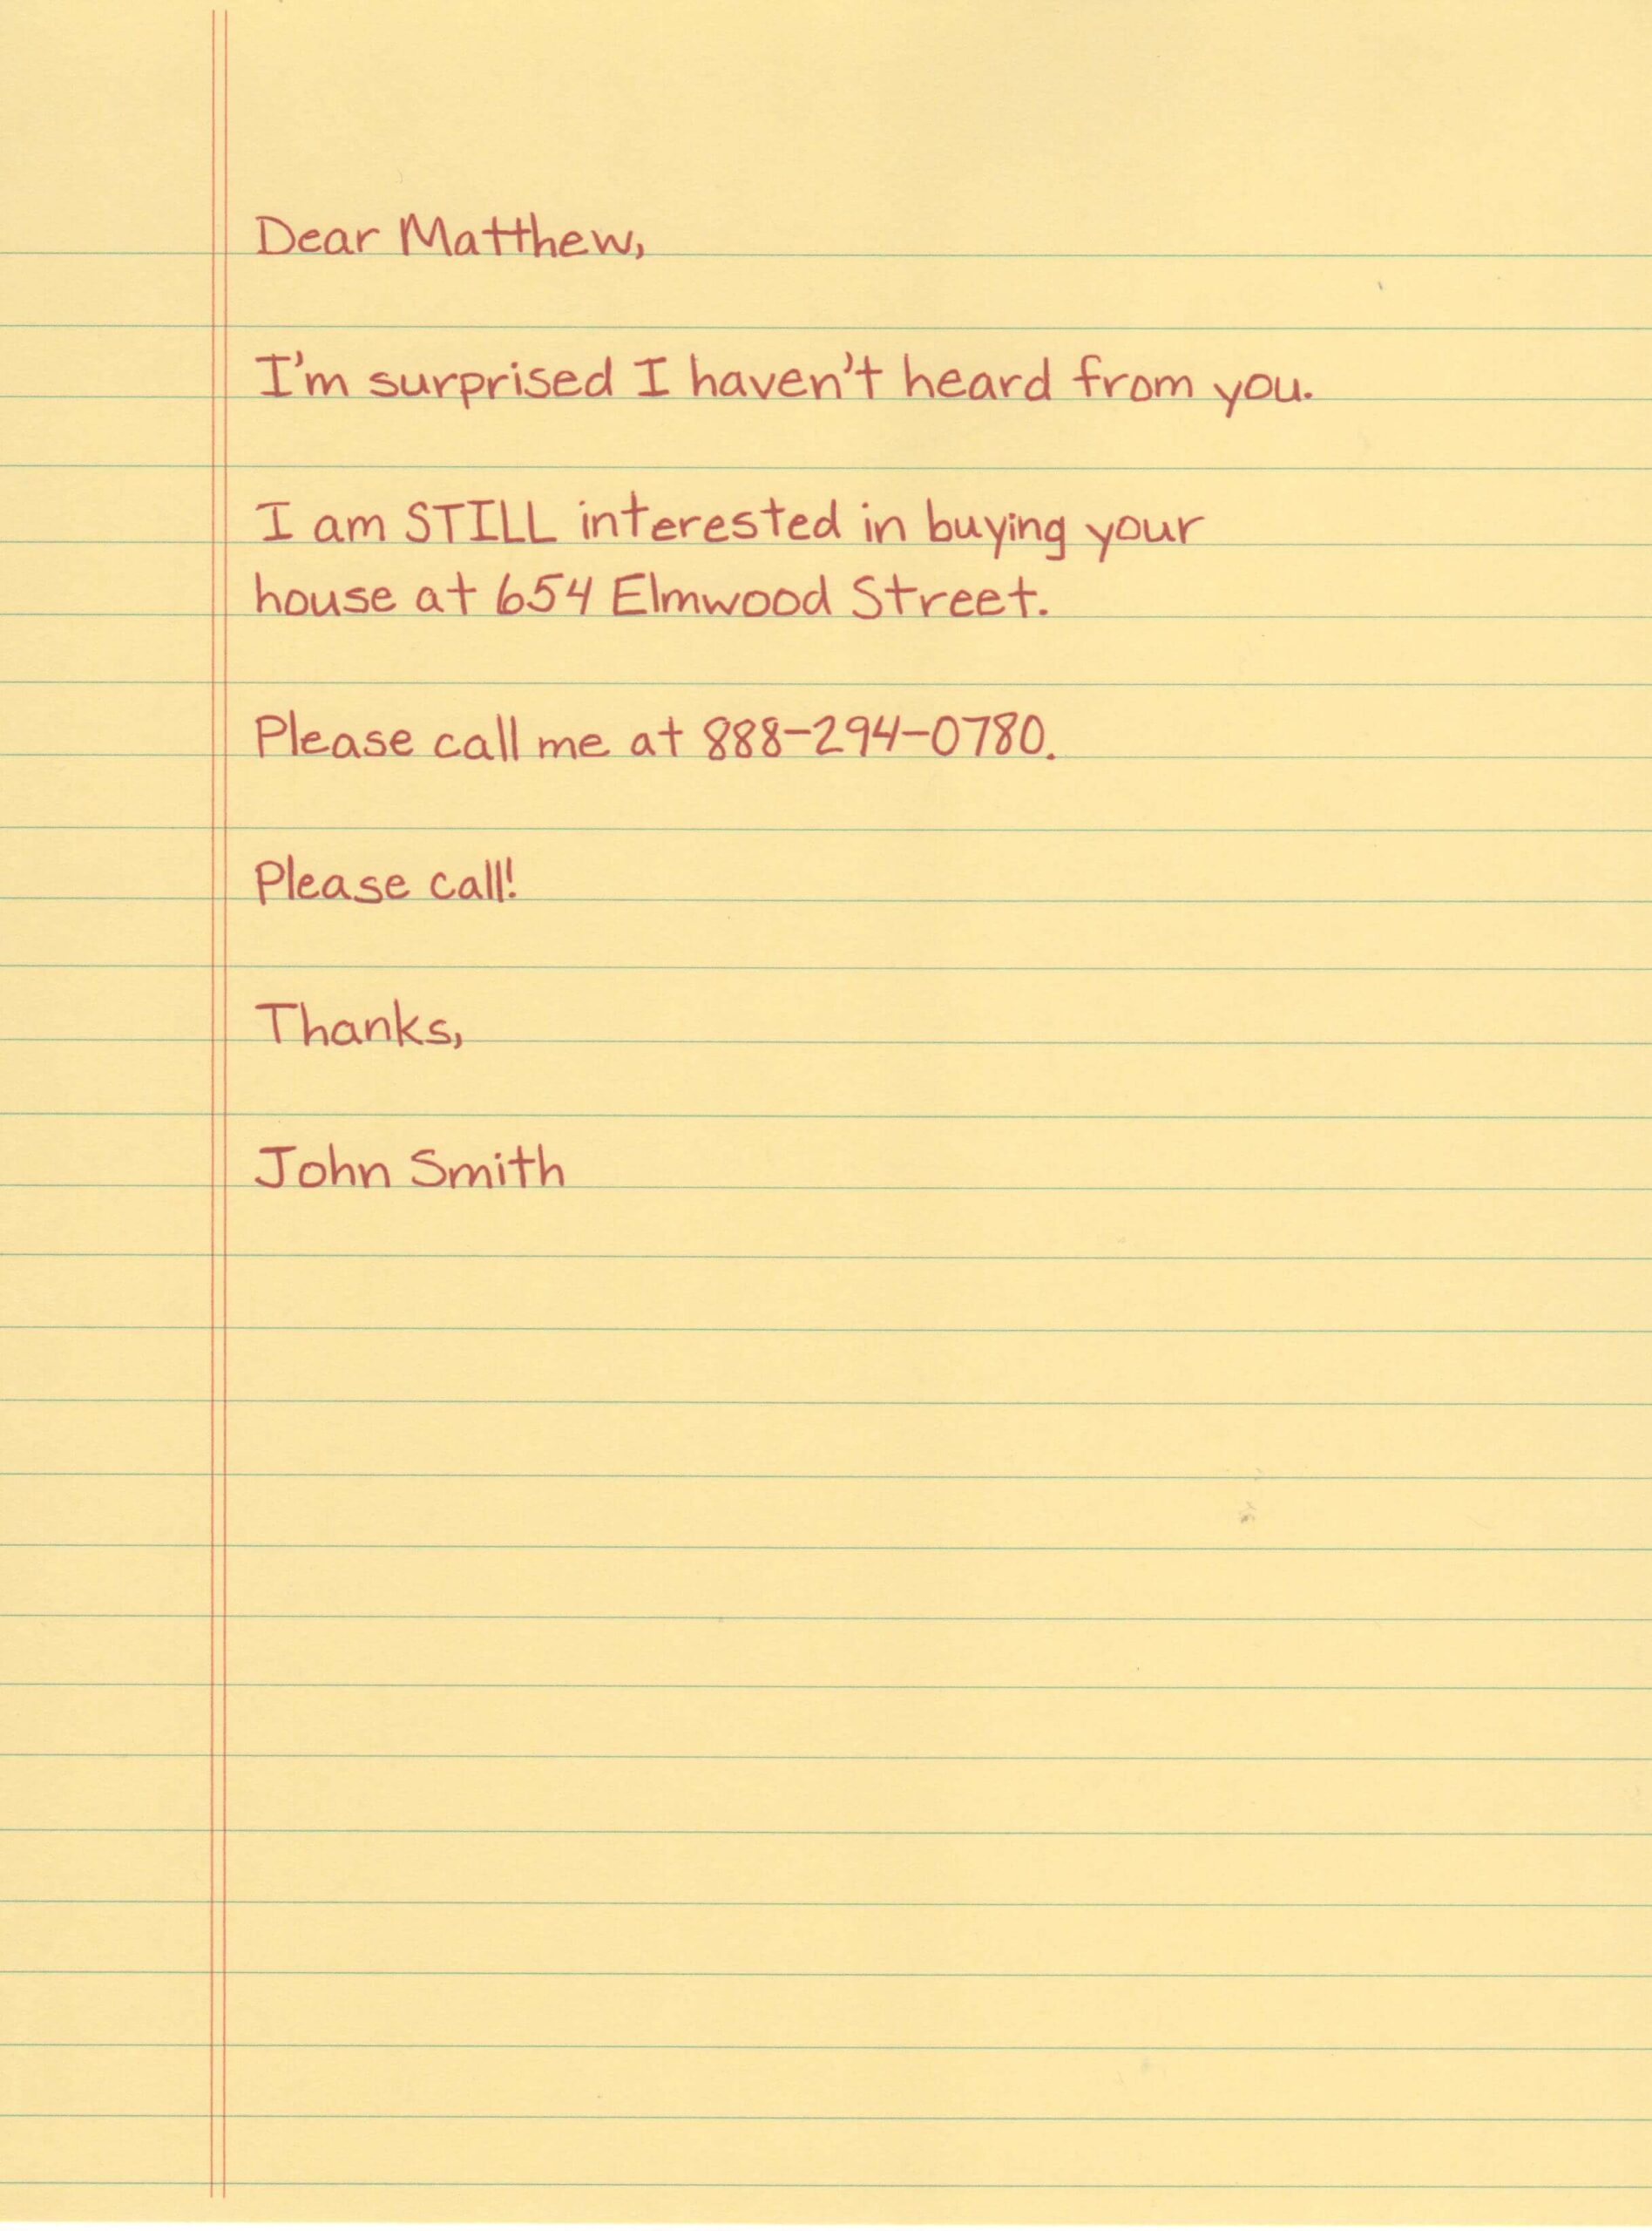 Dear Matthew,
I'm surprised I haven't heard from you.
I am STILL interested in buying your
house at 654 Elmwood Street.
Please call me at 888-294-0780.
Please call!
Thanks,
John Smith